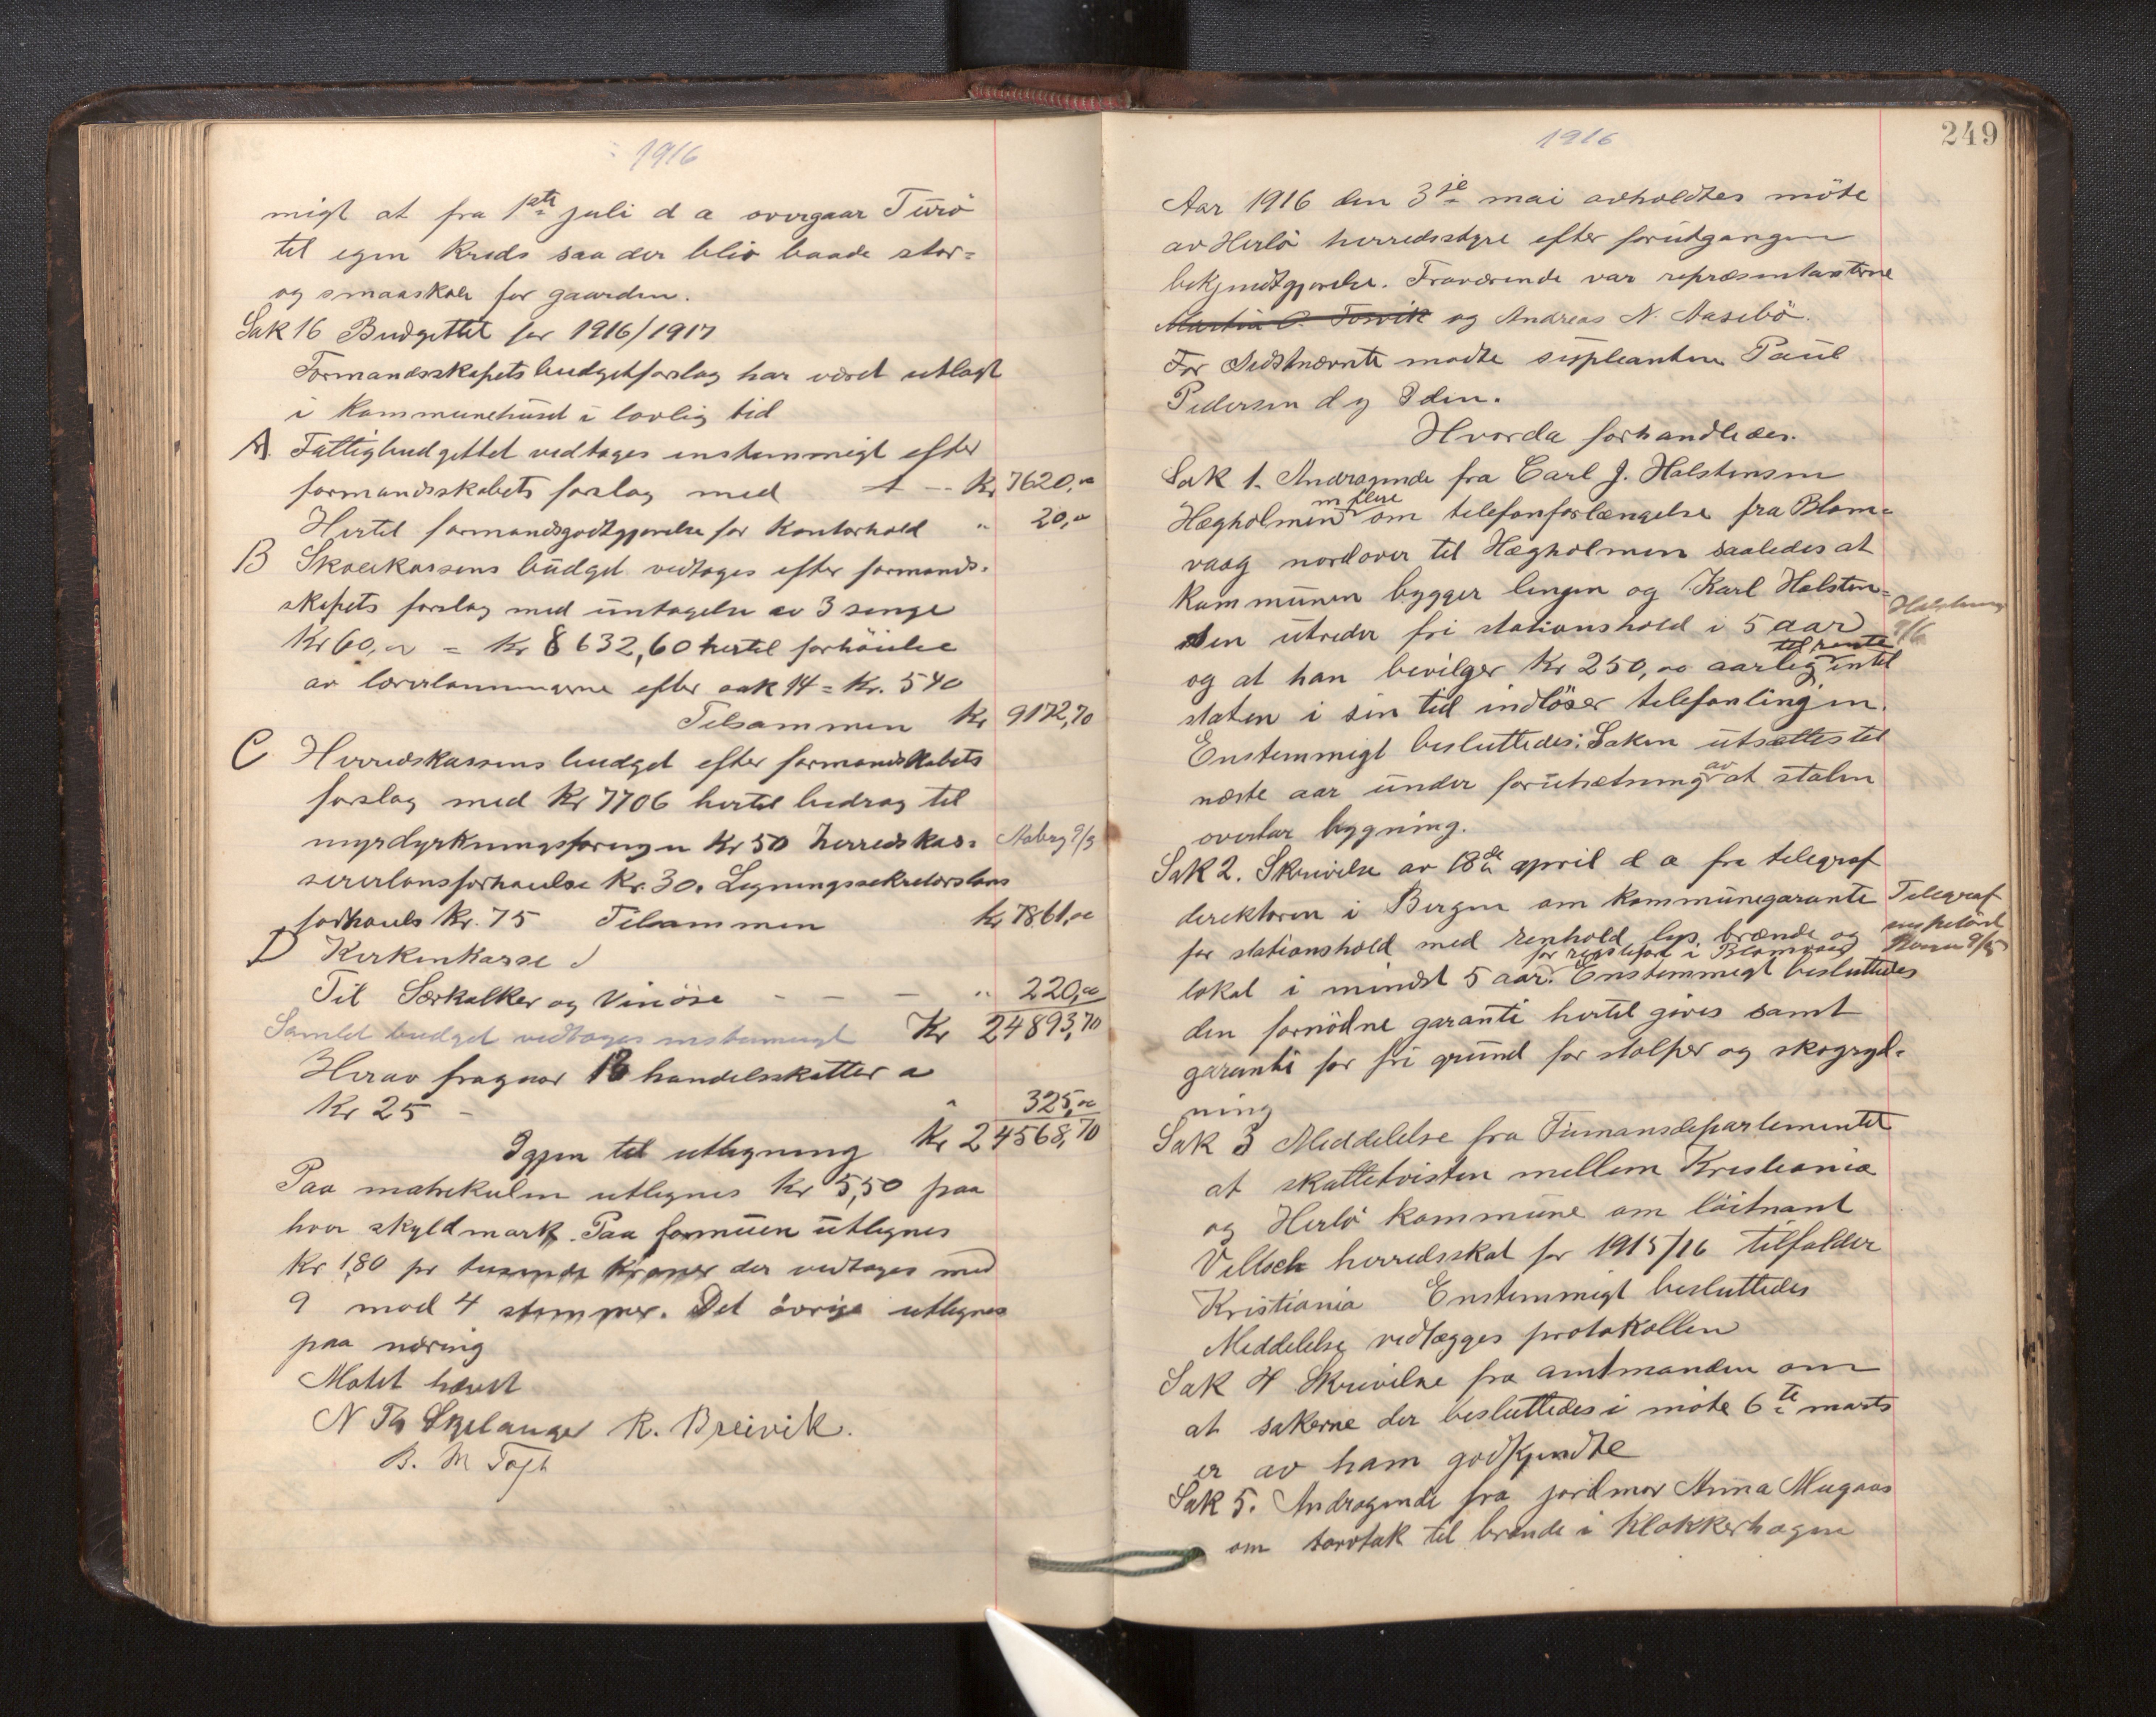 1916
migt at fra 1ste juli d a overgaar Turö
til egen Kreds saa der bliv baade stor=
og smaaskole for gaarden.
Sak 16 Budgettet for 1916/1917
Formandsskapets budgetforslag har været utlagt
i Kommunehuset i lovlig tid
A Fattigbudgettet vedtages enstemmigt efter
formandsskabets forslag med Kr 7620,00
Hertil formandsgodtgjørelse for Kontorhold " 20,00
B Skolekassens budget vedtages efter formands-
skapets forslag med untagelse av 3 senge
Kr 60,00 = Kr 8632,60 hertil forhöielse
av lærerlønnerne efter sak 14 = Kr. 540
Tilsammen Kr 9172,70
C Herredskassens budget efter formandskabets
forslag med Kr 7706 hertil bedrag til
myrdyrkningsforeingen Kr 50 herredskas=
sererlønsforhøielse Kr. 30. Ligningssekretærsløns
forhøiels Kr. 75 Tilsammen Kr 7861,00
Aaberg 9/5
D Kirkenkasse
Til Særkalker og Vinöse - - - " 220,00
Samlet budget vedtages enstemmigt Kr 24893,70
Herav fragaar 13 handelsskatter a
Kr 25 - " 325,00
Igjen til utligning Kr 24568,70
Paa matrikulen utlignes Kr 5,50 paa
hver skyldmark. Paa formuen utlignes
Kr 1,80 pr tusende Kroner der vedtages med
9 mod 4 stemmer. Det övrige utlignes
paa næring
Møtet hævet
N Th Skjelanger R. Breivik.
B. M Toft
1916
249
Aar 1916 den 3je mai avholdtes möte
av Herlö herredsstyre efter forutgangen
bekjendtgjørelse. Fraværende var repræsentanterne
Martin O. Torvik og Andreas N. Aasebö.
For sidstnævnte mødte supleanten Paul
Pedersen d y Öden.
Hvorda forhandledes.
Sak 1. Andragende fra Carl J. Halstensen
Hægholmen m flere om telefonforlængelse fra Blom=
vaag nordover til Hægholmen saaledes at
Kommunen bygger lingen og Karl Halsten=
sen utreder fri stationshold i 5 aar
Halstensen
9/6
og at han bevilger Kr 250,00 aarlig til rente intil
staten i sin tid indlöser telefonlingjen.
Enstemmigt besluttedes: Saken utsættes til
næste aar under forutsetning av at staten
overtar bygning.
Sak 2. Skrivelse av 18de april d a fra telegraf
derektøren i Bergen om Kommunegarante
Telegraf
for stationshold med renhold lys, brænde og
lokal i mindst 5 aar for rigstelefon i Blomvaag. Enstemmigt besluttedes
den fornödne garanti hertil gives samt
garanti for fri grund for stolper og skogryd-
ning
Sak 3 Meddelelse fra Finansdepartementet
at skattetvisten mellem Kristiania
og Herlö Kommune om löitnant
Veltsch herredsskat for 1915/16 tilfalder
Kristiania Enstemmigt besluttedes
Meddelelse vedlægges protokollen
Sak 4 Skrivelse fra amtmanden om
at sakerne der besluttedes i möte 6te marts
er av ham godkjendte
Sak 5. Andragende fra jordmor Anna Mugaas
om torvtak til brænde i Klokkerhagen